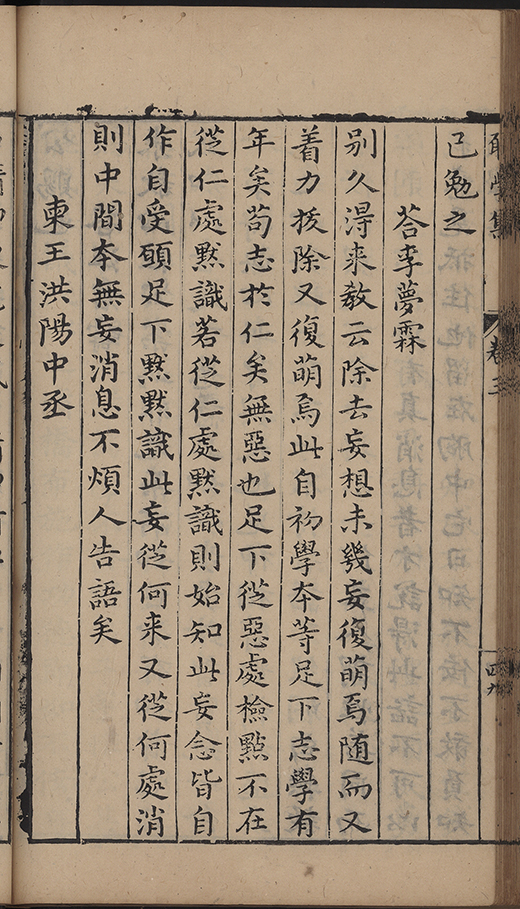 學集
卷三
四九
已勉之
荅李夢霖
别久淂来敎云除去妄想未幾妄復萌焉随而又
着力拔除又復萌焉此自初學本等足下志學有
年矣苟志於仁矣無惡也足下從惡處檢點不在
從仁處默識若從仁處默識則始知此妄念皆自
作自受願足下默默識此妄從何来又從何處消
則中間本無妄消息不煩人告語矣
柬王洪陽中丞